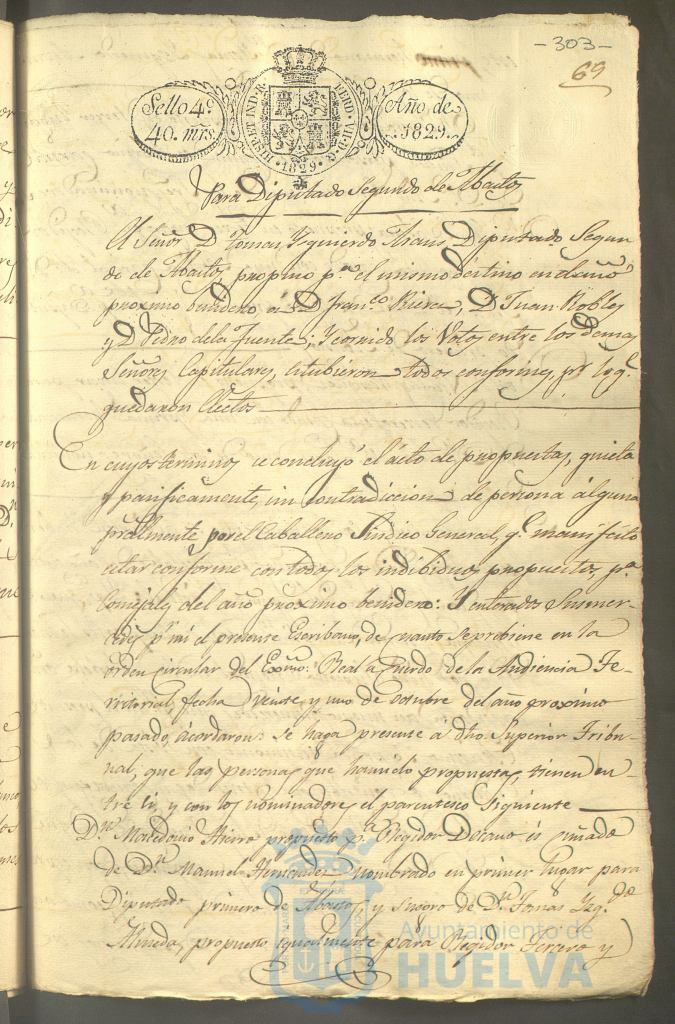 -303-
69
Sello 4º
40. mrs.
HISP. ET IND. R. FERD. VII. D. G. 1829.
Año de
1829.
Para Diputado Segundo de Abastos
Al Señor D. Tomas Yzquierdo Diputado Segun
do de Abastos, propuso pª el mismo destino en el año
proximo benidero, á D Franco Riera, D Juan Robles
y D Pedro de la Fuente; y corrido los Votos entre los demas
Señores Capitulares, estubieron todos conformes, pr lo q.
quedaron Electos
En cuyos terminos se concluyó el acto de propuestas, quieta
y pacificamente, sin contradiccion de persona alguna
pralmente por el Caballero Sindico General, q. manifestó
estar conforme con todos los indibiduos propuestos, pª
Concejales del año proximo benidero: Y enterados Susmer-
cedes pr mi el presente Escribano, de cuanto se prebiene en la
orden circular del Exmo: Real acuerdo de la Audiencia Te-
rritorial, fecha veinte y uno de octubre del año proximo
pasado, acordaron: se haga presente á dho. Superior Tribu-
nal, que las personas que han sido propuestas, tienen en-
tre si, y con los nominadores el parentesco Siguiente
Dn Macedonio propuesto pª Regidor Decano és cuñado
de Dn Manuel Hernandez nombrado en primer lugar para
Diputado primero de Abastos, y suegro de Dn Tomas Yzqdo
propuesto igualmente para Regidor Tercero y
Ayuntamiento de
HUELVA